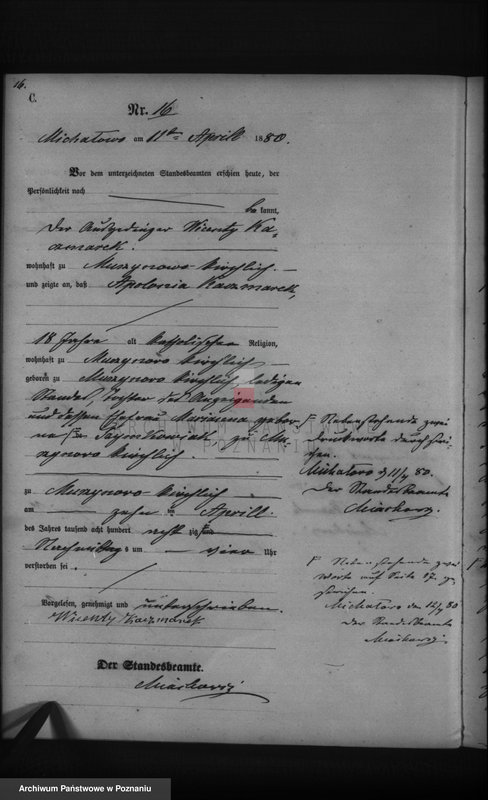 16.
C.
Nr. 16
Michalowo am 11ten Aprill 1880.
Vor dem unterzeichneten Standesbeamten erschien heute, der
Persönlichkeit nach
be kannt,
der Ausgedinger Wicenty Ka-
czmarek.
wohnhaft zu Murzynowo kirchlich.
und zeigte an, daß Apolonia Kaczmarek,
18 Jahre alt katholischer Religion,
wohnhaft zu Murzynowo kirchlich
geboren zu Murzynowo kirchlich, ledigen
Standes, Tochter des Anzeigenden
und dessen Ehefrau Marianna gebor-
ne zu Mu-
rzynowo kirchlich.
zu Murzynowo kirchlich
am zehn ten Aprill
des Jahres tausend acht hundert acht zig
Nachmittags um vier Uhr
verstorben sei.
Vorgelesen, genehmigt und unterschrieben.
Wicenty Kaczmarek
Der Standesbeamte.
Nebenstehende zwei
Druckworte durchstri-
chen.
Michalowo d 11/4 80.
Der Standesbeamte
Nebenstehende zwei
Worte auf Seite 17. ge-
strichen.
Michalowo den 12/4 80
Der Standesbeamte
ARCHIWUM PAŃSTWOWE
POZNAŃ
Archiwum Państwowe w Poznaniu